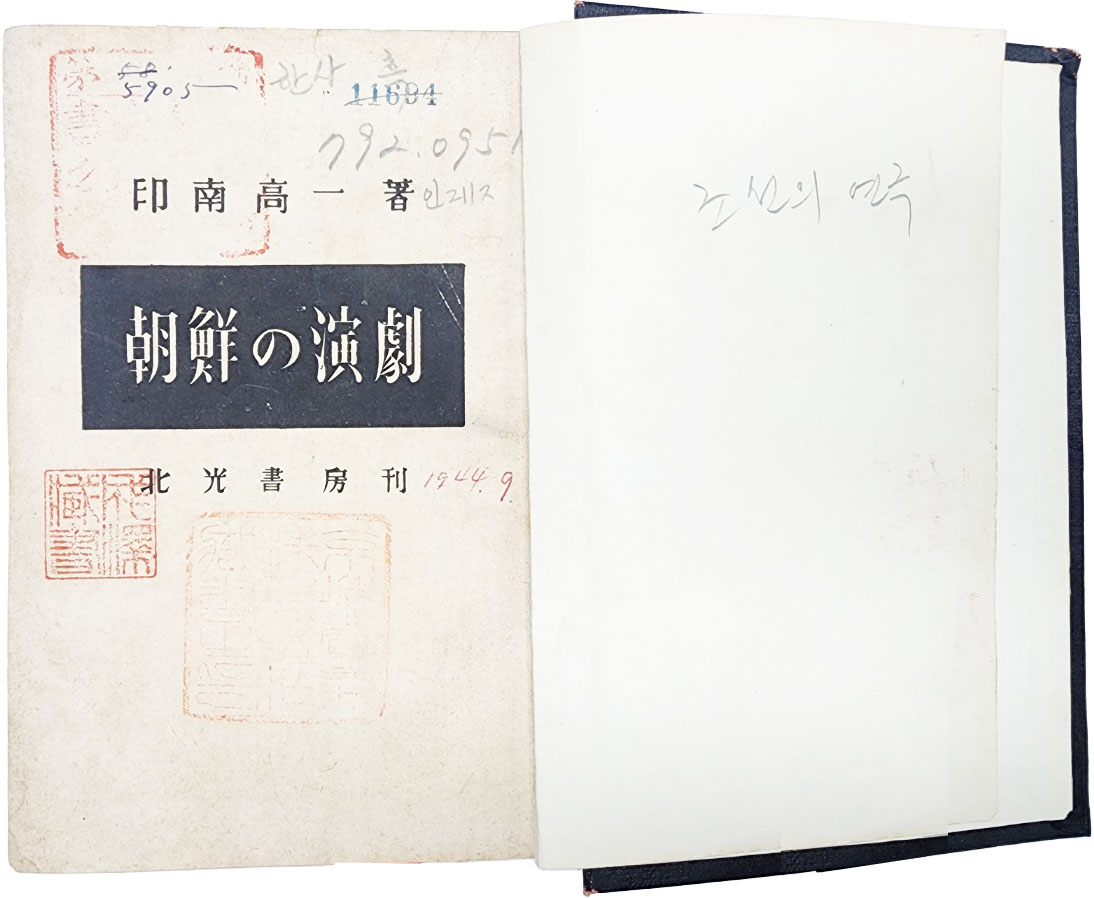 58.
5905
한사
11694
792.0951
印南高一 著
인ㄹㅔㅈ
朝鮮の演劇
北光書房刊
1944.9.
藏書
조선의 연극